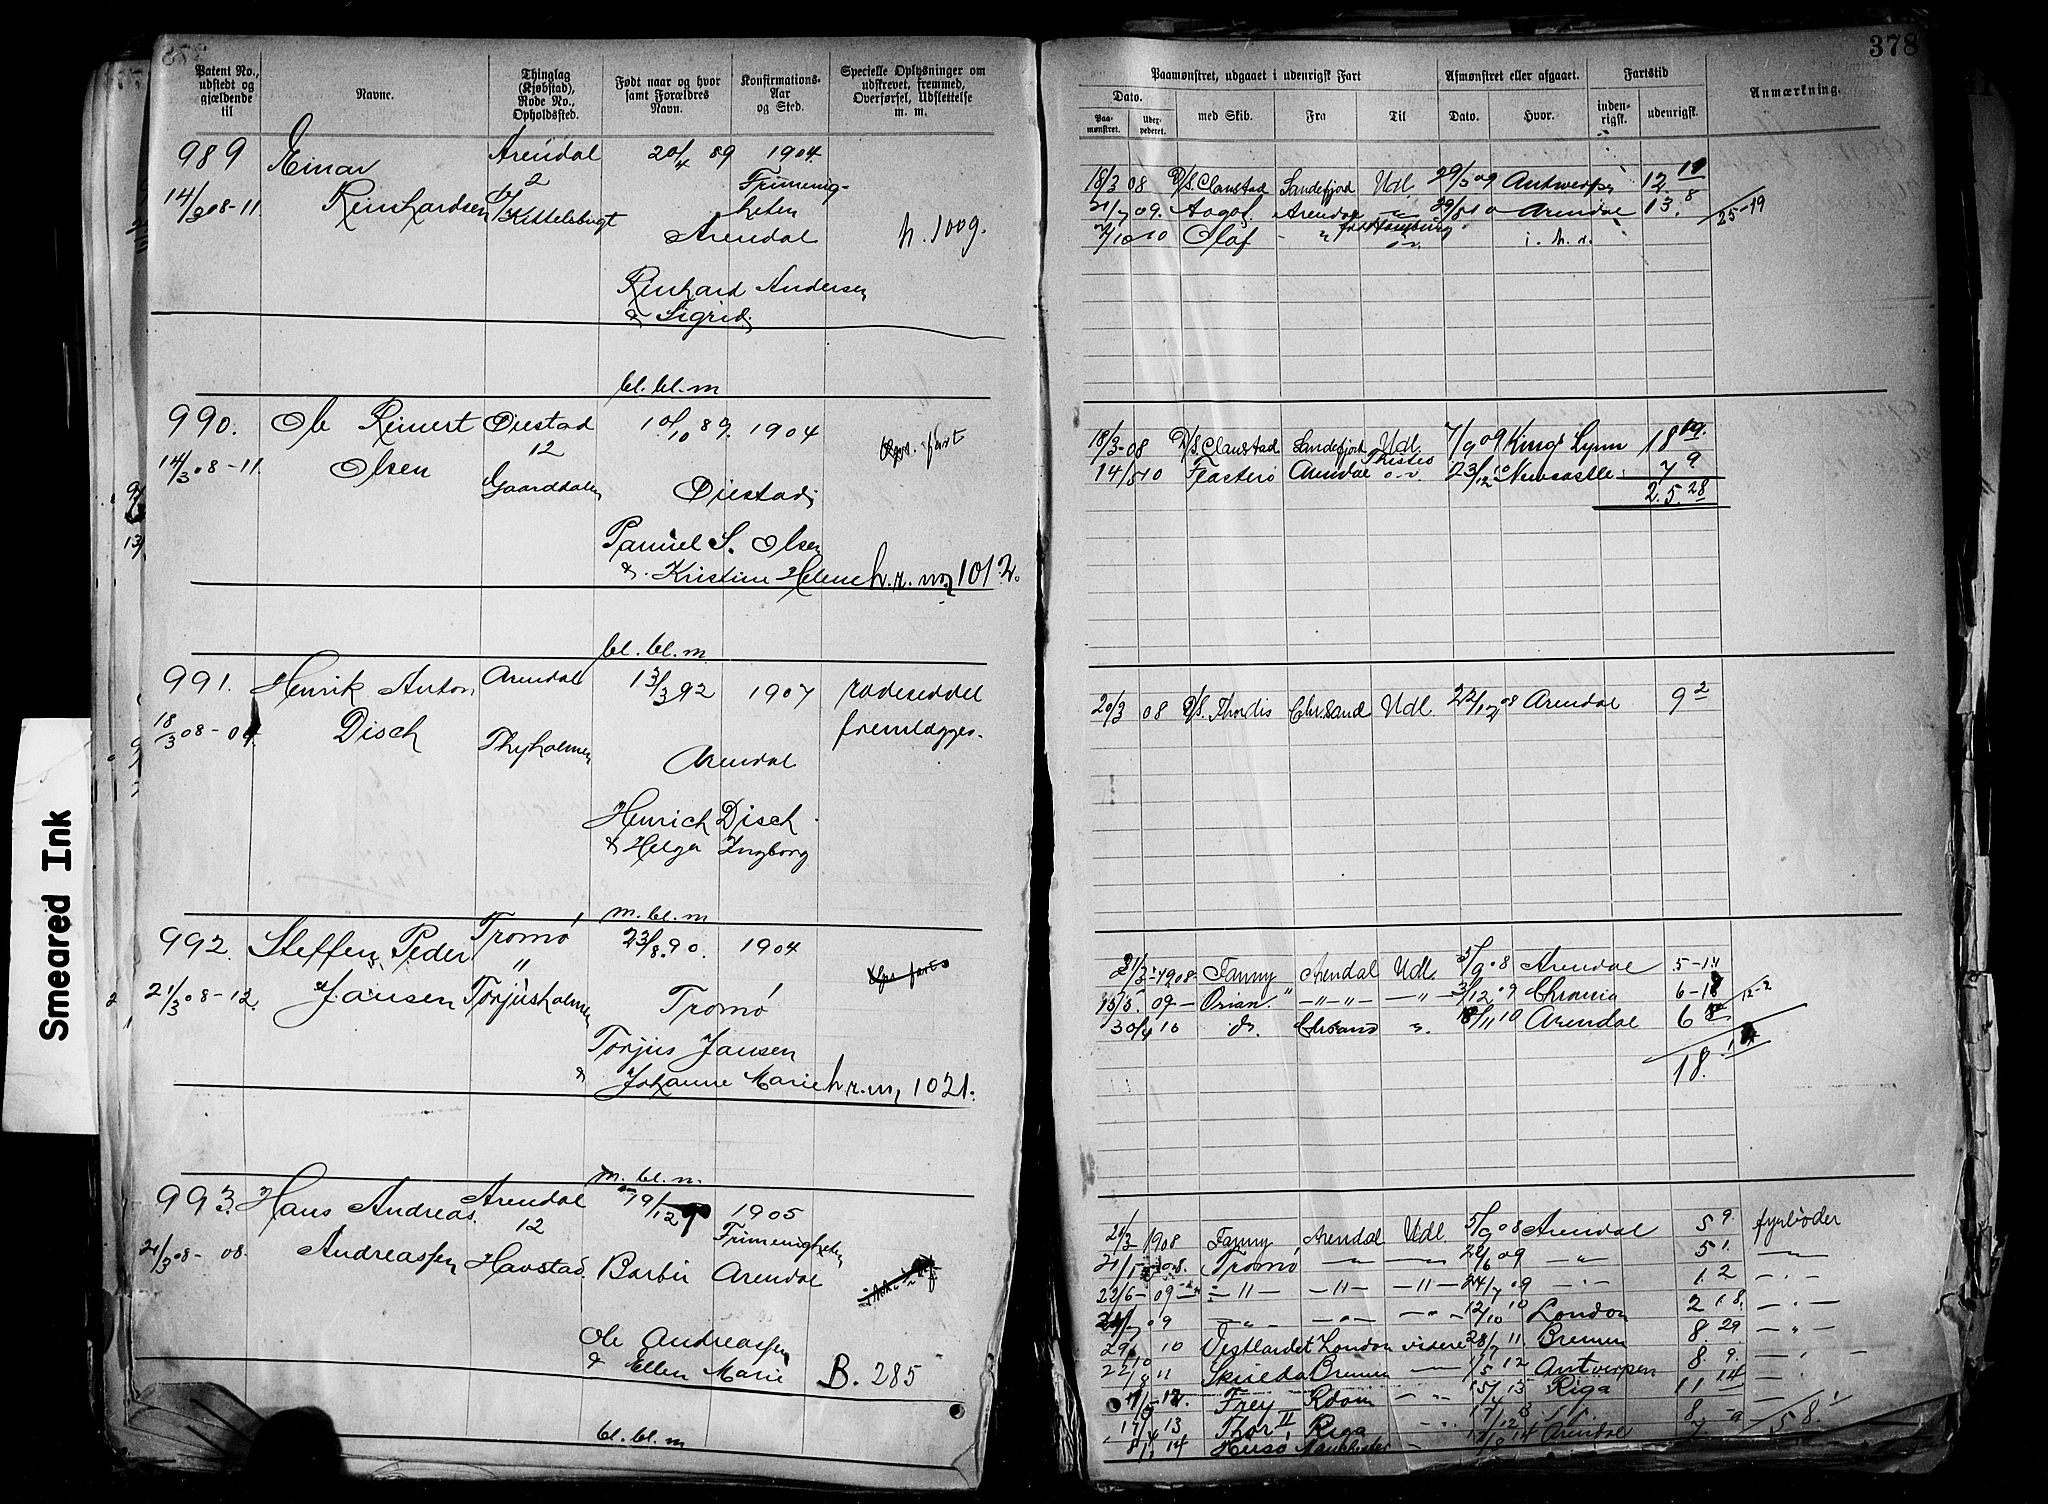 378
Patent No., udstedt og gjældende til
Navne.
Thinglag (Kjøbstad), Rode No., Opholdssted.
Født naar og hvor samt Forældres Navn.
Konfirmations-Aar og Sted.
Specielle Oplysninger om udskrevet, fremmed, Overførsel, Udslettelse m. m.
Paamønstret, udgaaet i udenrigsk Fart
Afmønstret eller afgaaet.
Fartstid
Anmærkning.
Dato.
Paa-mønstret.
med Skib.
Fra
Til
Dato.
Hvor.
inden-rigsk.
udenrigsk.
989 Einar Arendal 20/4 89 1904
14/3 08-11 Reinhardsen Kittelsbugt Frimenig-heten
Arendal h. 1009.
Reinhard Andersen
& Sigrid
bl. bl. m
18/3 08 D/S. Clanstad Sandefjord Udl. 29/3 09 Antwerpen 12
09. Aagot Arendal Arendal 13. 8
25-19
10 Olaf
990. Ole Reinert Øiestad 10/10 89. 1904
14/3 08-11. Olsen 12 Gaarddalen
Øiestad
Samuel S. Olsen
&. Kristine Helene h. r. 1012.
bl. bl. m
18/3-08 D/S. Clanstad Sandefjord Udl. 7/9 09 Kings Lynn 18 19.
14/5 10 Flasterø Arendal 23/12 10 Newcastle 7 9.
2. 5. 28
991. Henrik Anton Arendal 13/3 92 1907 rodeseddel
18/3 08-09. Disch Thyholmen fremlægges.
Arendal
Henrich Disch
& Helga Ingborg
m. bl. m
20/3 08 D/S. Thordis Chr.sand Udl. 22/12 08 Arendal 9 2
992. Steffen Peder Tromø 23/8 90. 1904
21/3 08-12. Jansen Torjusholmen Tromø
Torjus Jansen
& Johanne Marie h. r. 1021.
m. bl. m.
21/3-1908. Fanny Arendal Udl. 5/9 08 Arendal 5-14
15/5 09- Orian 3/12 09 Chrania 6-18
12-2
30/4 10 Chrsand 18/11 10 Arendal 6
18.
993. Hans Andreas Arendal 19/12 1905
21/3 08- 08. Andreassen 12 Havstad. Barbu Frimenigheten Arendal
Ole Andreassen
& Ellen Marie B. 285
bl. bl. m
21/3 1908 Fanny Arendal Udl. 5/9 08 Arendal 5 9. fyrbøder
Tromø 22/6 09 5 1.
22/6-09 24/7 09 1. 2
24/7 09 12/10 10 London 2 18.
29/10 10 Vestlandet London videre 28/7 11 Bremen 8. 29
22/8 11 Skuelda Bremen 1/5 12 Antverpen 8. 9.
1/5 12. Frey 15/4 13 Riga 11 14
17/4 13 Thor II Riga
58.
14 Hisø Manchester 14 Arendal
Smeared Ink